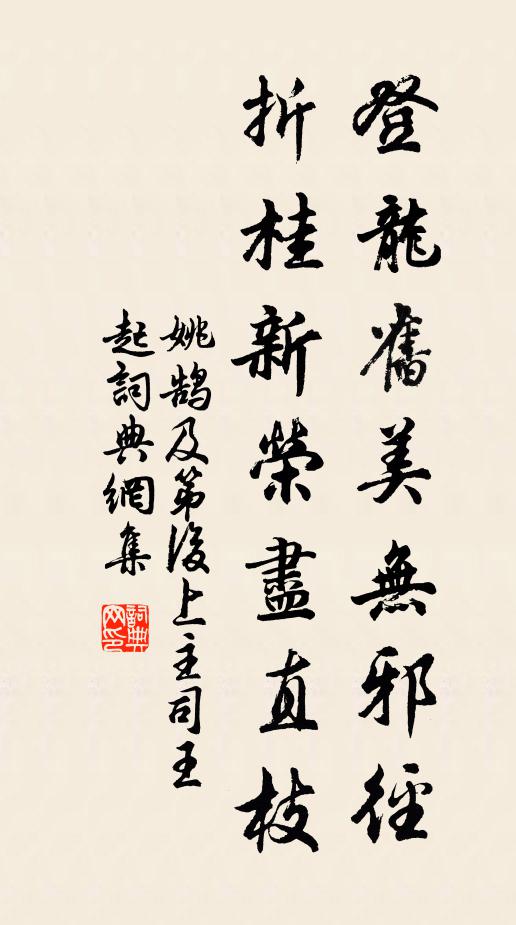 登龍舊美無邪徑
折桂新榮盡直枝
姚鵠及第後上主司王
起詞典網集
詞典網印